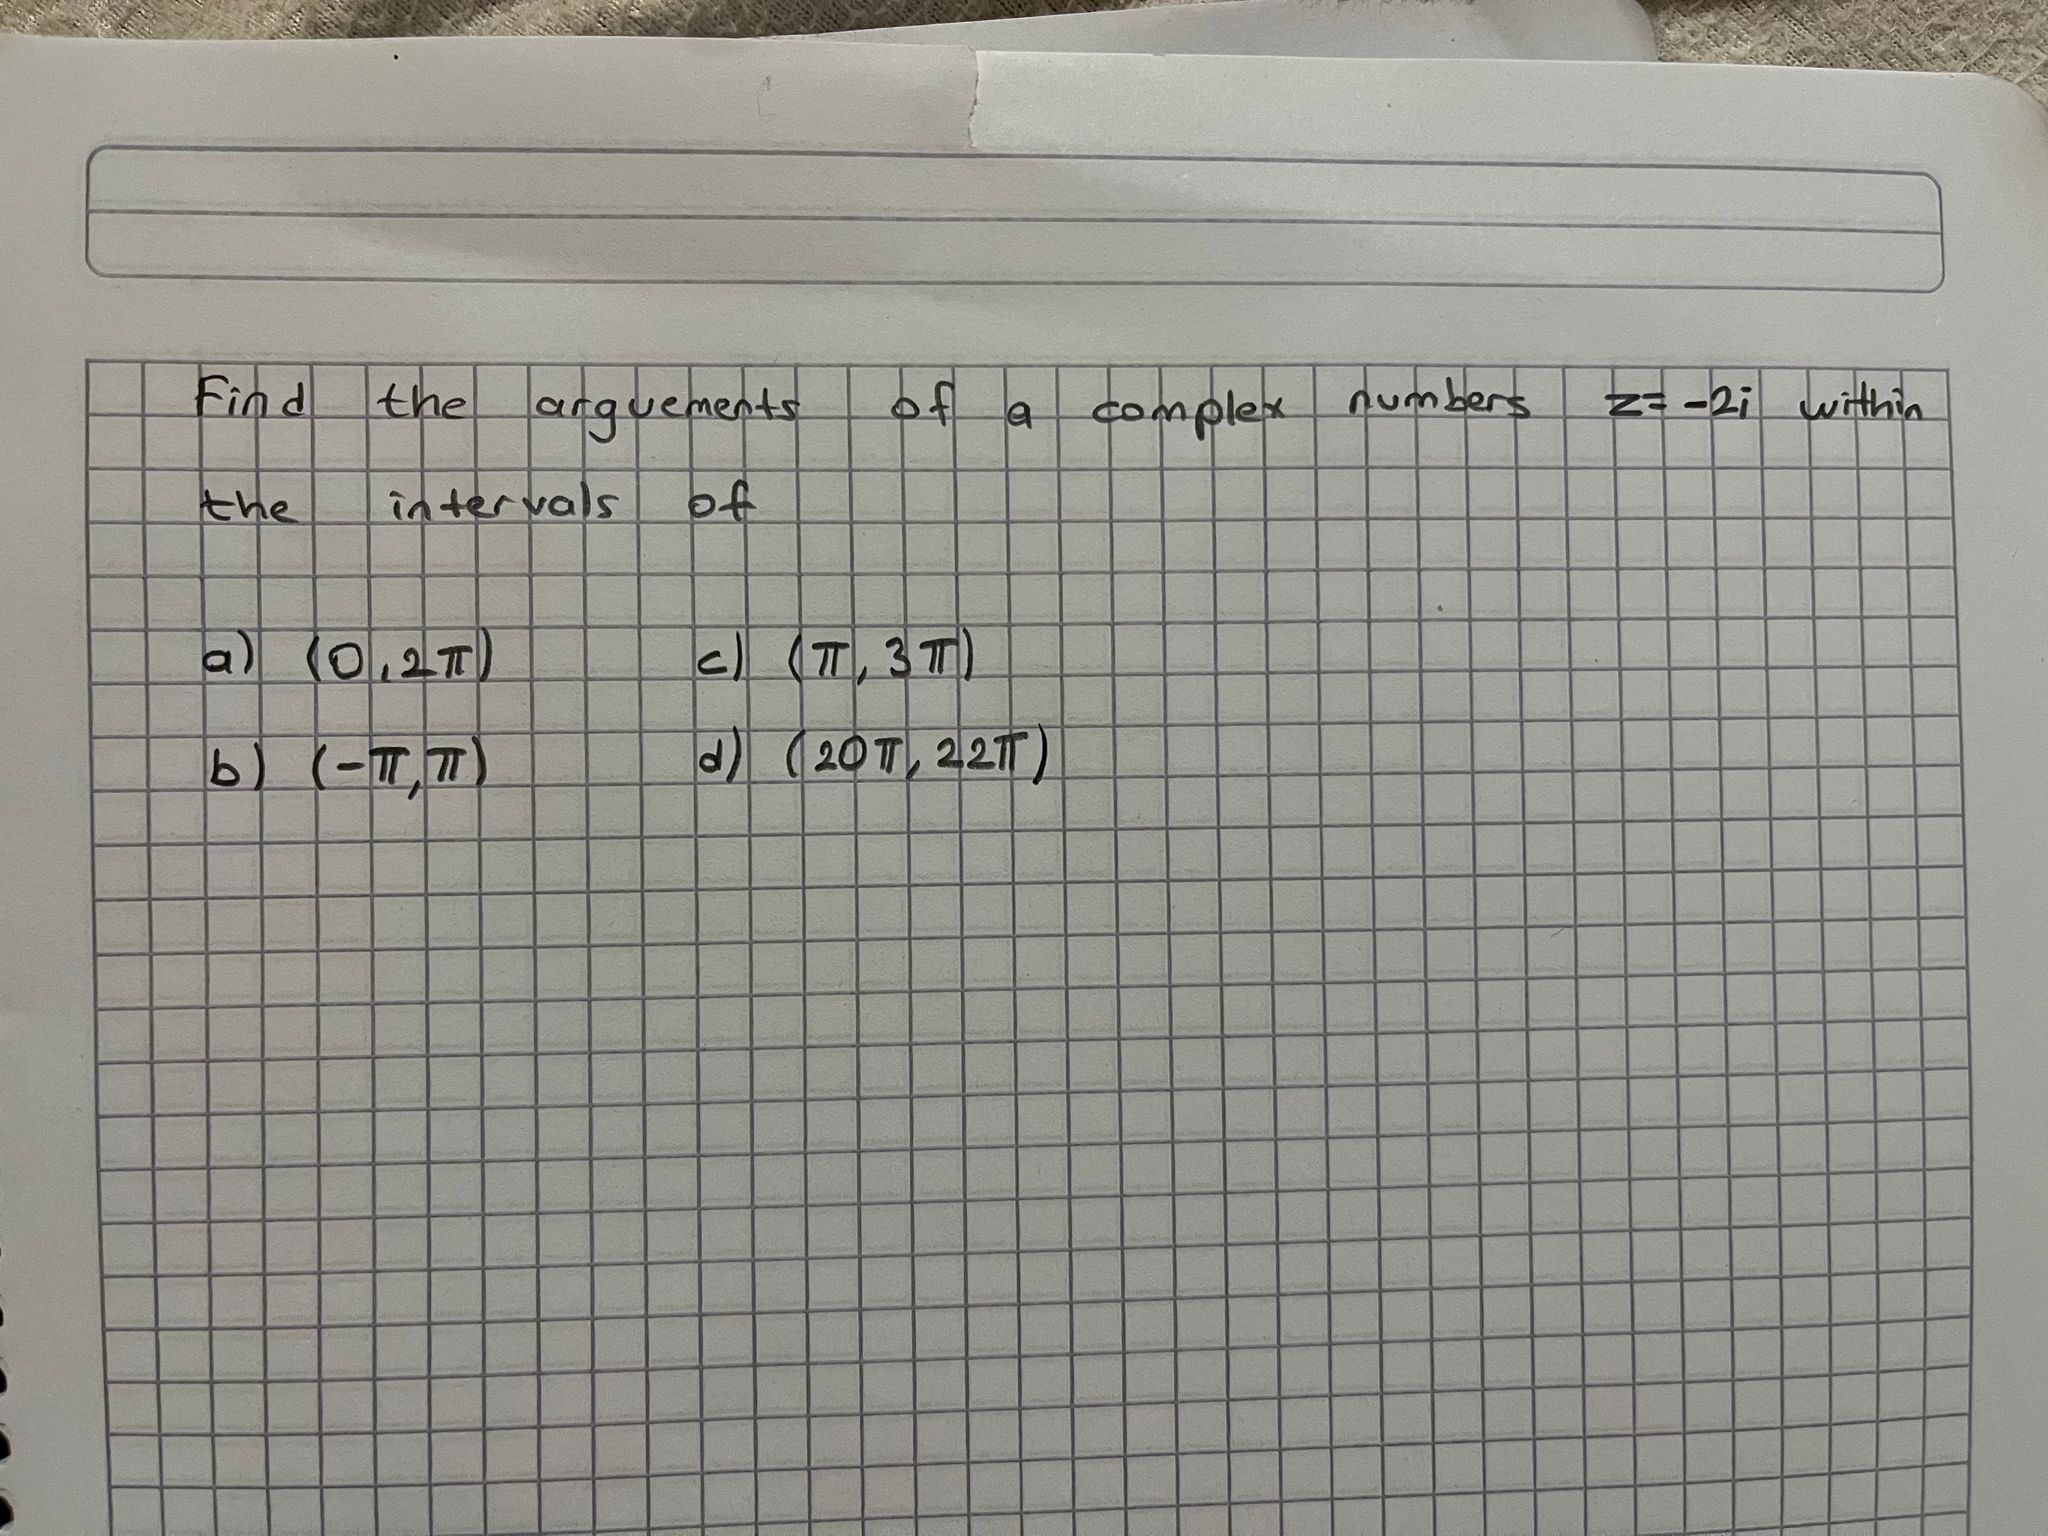 Find the arguements of a complex numbers z= -2i within
the intervals of
a) (0,2π) c) (π, 3π)
b) (-π,π) d) (20π, 22π)